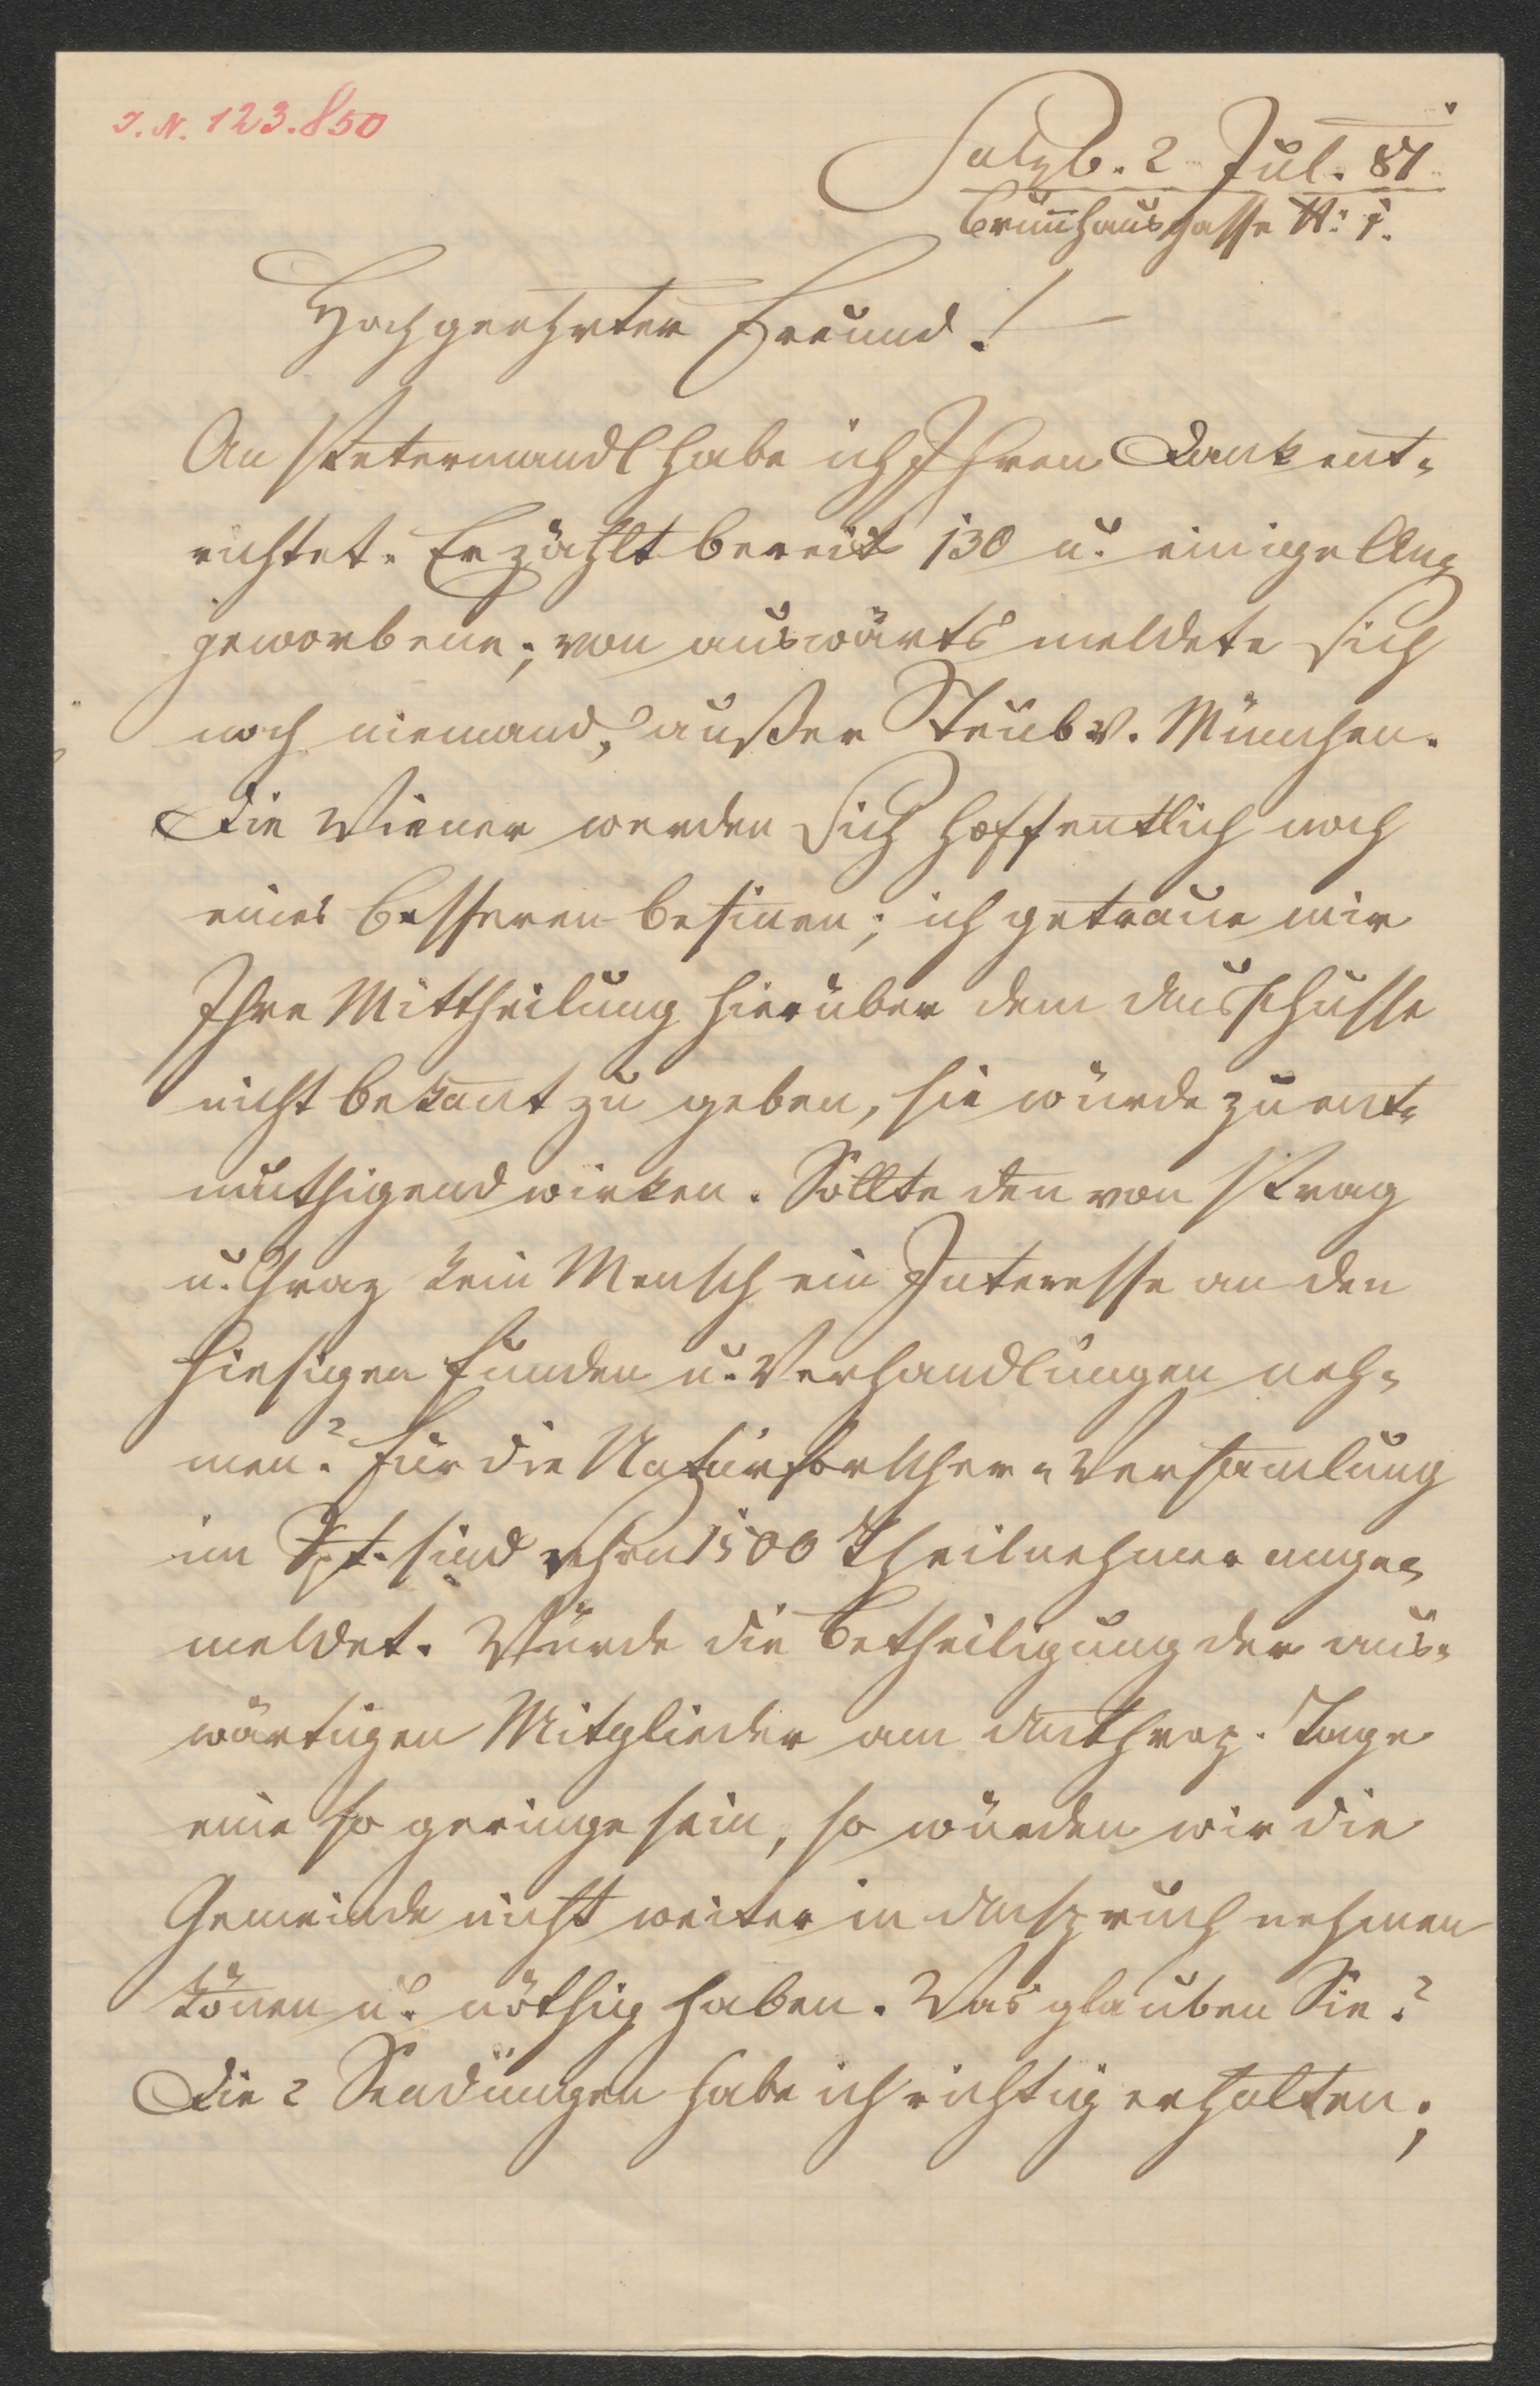 J. N. 123.850
Salzb. 2 Jul. 81
Brun̄hausgasse N: 1.
Hochgeehrter Freund!
An Petermandl habe ich Ihren Dank ent-
richtet. Er zählt bereits 130 u. einige Ang
geworbene; von auswärts meldete sich
noch niemand, außer Steub v. München.
Die Wiener werden sich hoffentlich noch
eines besseren besin̄en; ich getraue mir
Ihre Mittheilung hierüber dem Ausschusse
nicht bekan̄t zu geben, sie würde zu ent-
muthigend wirken. Sollte den von Prag
u. Graz kein Mensch ein Interesse an den
hiesigen Funden u. Verhandlungen neh-
men? Für die Naturforscher-Versam̄lung
im Spt. sind schon 1500 Theilnehmer ange-
meldet. Würde die Betheiligung der aus-
wärtigen Mitglieder am Anthrop. Tage
eine so geringe sein, so würden wir die
Gemeinde nicht weiter in Anspruch nehmen
kön̄en u. nöthig haben. Was glauben Sie?
Die 2 Sendungen habe ich richtig erhalten;